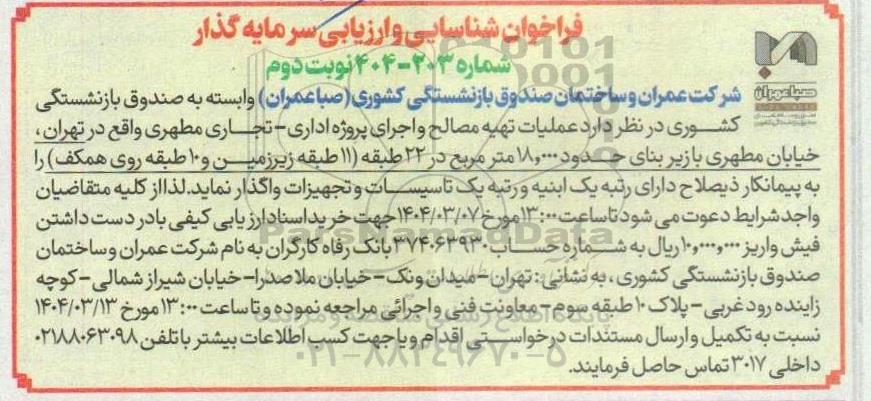 فراخوان شناسایی و ارزیابی سرمایه گذار
شماره ۲۰۳-۴۰۴ نوبت دوم
صباعمران
شرکت عمران و ساختمان صندوق بازنشستگی کشوری (صباعمران) وابسته به صندوق بازنشستگی
کشوری در نظر دارد عملیات تهیه مصالح و اجرای پروژه اداری - تجاری مطهری واقع در تهران،
خیابان مطهری با زیر بنای حدود ۱۸,۰۰۰ متر مربع در ۲۲ طبقه (۱۱ طبقه زیرزمین و ۱۰ طبقه روی همکف) را
به پیمانکار ذیصلاح دارای رتبه یک ابنیه و رتبه یک تاسیسات و تجهیزات واگذار نماید. لذا از کلیه متقاضیان
واجد شرایط دعوت می شود تا ساعت ۱۳:۰۰ مورخ ۱۴۰۴/۰۳/۰۷ جهت خرید اسناد ارزیابی کیفی با در دست داشتن
فیش واریز ۱۰,۰۰۰,۰۰۰ ریال به شماره حساب ۳۷۴۰۶۳۹۳۰ بانک رفاه کارگران به نام شرکت عمران و ساختمان
صندوق بازنشستگی کشوری، به نشانی: تهران - میدان ونک - خیابان ملاصدرا - خیابان شیراز شمالی - کوچه
زاینده رود غربی - پلاک ۱۰ طبقه سوم - معاونت فنی و اجرائی مراجعه نموده و تا ساعت ۱۳:۰۰ مورخ ۱۴۰۴/۰۳/۱۳
نسبت به تکمیل و ارسال مستندات درخواستی اقدام و یا جهت کسب اطلاعات بیشتر با تلفن ۰۲۱۸۸۰۶۳۰۹۸
داخلی ۳۰۱۷ تماس حاصل فرمایند.
ParsNamadData
۰۲۱-۸۸۳۴۹۶۷۰-۵